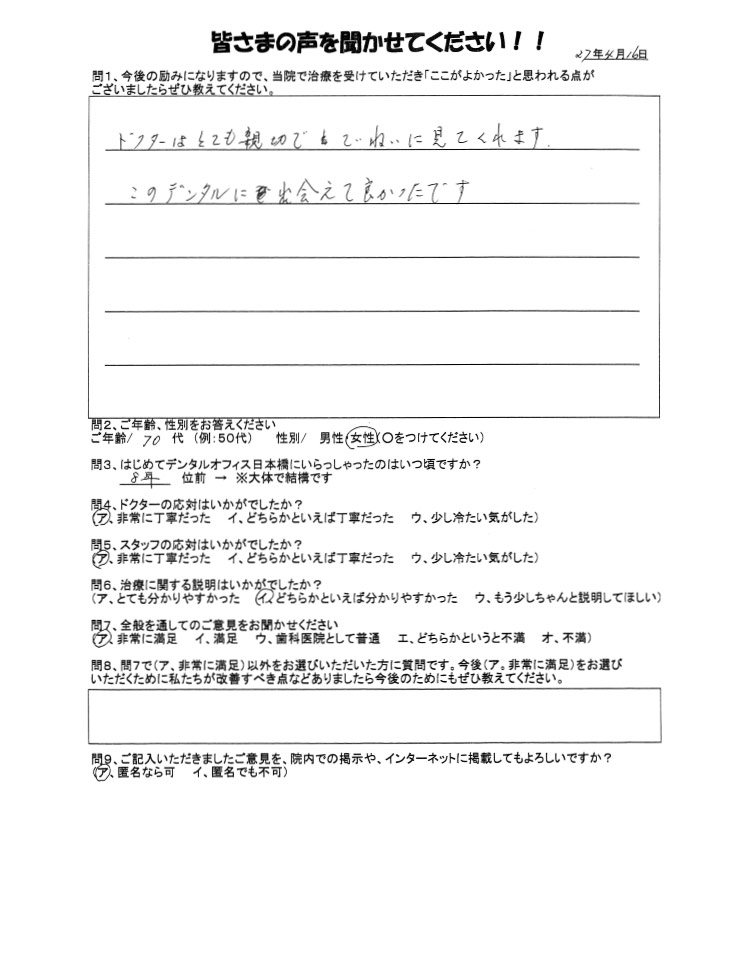 皆さまの声を聞かせてください！！
27年4月16日
問1、今後の励みになりますので、当院で治療を受けていただき「ここがよかった」と思われる点が
ございましたらぜひ教えてください。
ドクターはとても親切で ていねいに見てくれます.
このデンタルに出会えて良かったです
問2、ご年齢、性別をお答えください
ご年齢/ 70 代 （例：50代） 性別/ 男性・女性（○をつけてください）
問3、はじめてデンタルオフィス日本橋にいらっしゃったのはいつ頃ですか？
8年 位前 → ※大体で結構です
問4、ドクターの応対はいかがでしたか？
（ア、非常に丁寧だった イ、どちらかといえば丁寧だった ウ、少し冷たい気がした）
問5、スタッフの応対はいかがでしたか？
（ア、非常に丁寧だった イ、どちらかといえば丁寧だった ウ、少し冷たい気がした）
問6、治療に関する説明はいかがでしたか？
（ア、とても分かりやすかった イ、どちらかといえば分かりやすかった ウ、もう少しちゃんと説明してほしい）
問7、全般を通してのご意見をお聞かせください
（ア、非常に満足 イ、満足 ウ、歯科医院として普通 エ、どちらかというと不満 オ、不満）
問8、問7で（ア、非常に満足）以外をお選びいただいた方に質問です。今後（ア。非常に満足）をお選び
いただくために私たちが改善すべき点などありましたら今後のためにもぜひ教えてください。
問9、ご記入いただきましたご意見を、院内での掲示や、インターネットに掲載してもよろしいですか？
（ア、匿名なら可 イ、匿名でも不可）